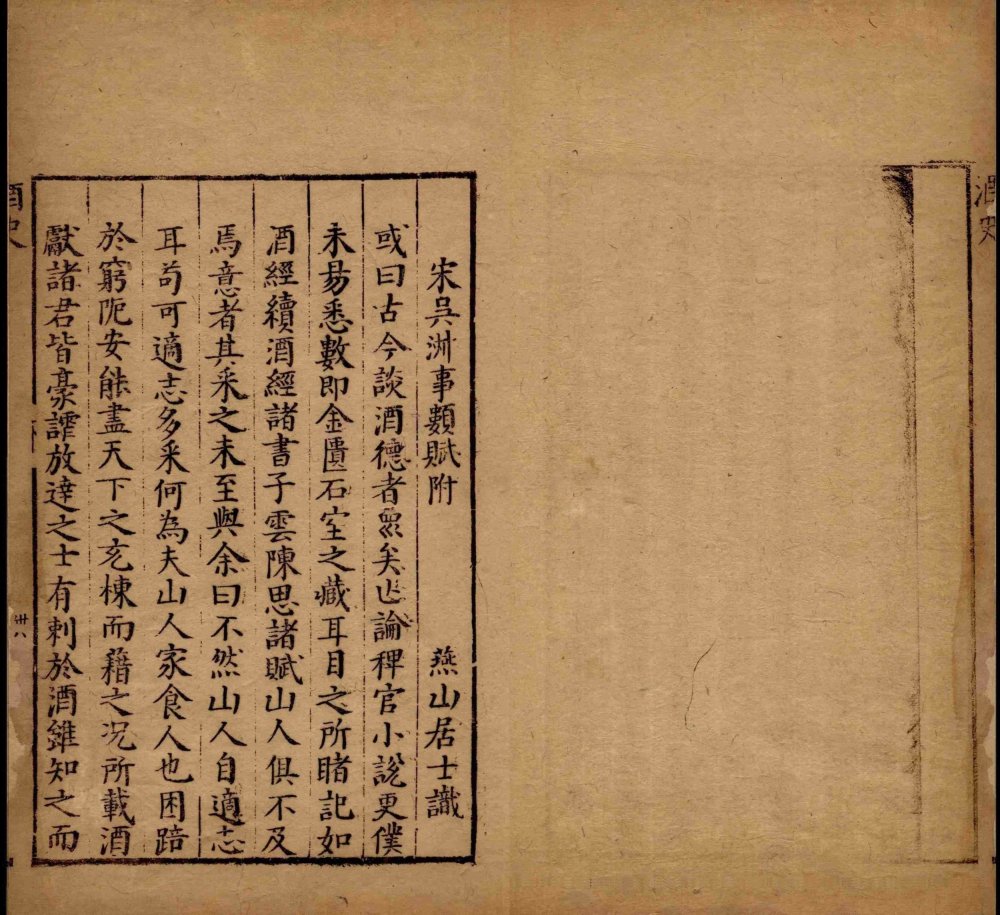 酒史
宋吳淑事類賦附 燕山居士識
或曰古今談酒德者眾矣亡論稗官小說更僕
未易悉數即金匱石室之藏耳目之所睹記如
酒經續酒經諸書子雲陳思諸賦山人俱不及
焉意者其采之未至與余曰不然山人自適志
耳苟可適志多采何為夫山人家食人也困踣
於窮阨安能盡天下之充棟而籍之況所載酒
獻諸君皆豪謔放達之士有刺於酒雖知之而
酒史
卅八